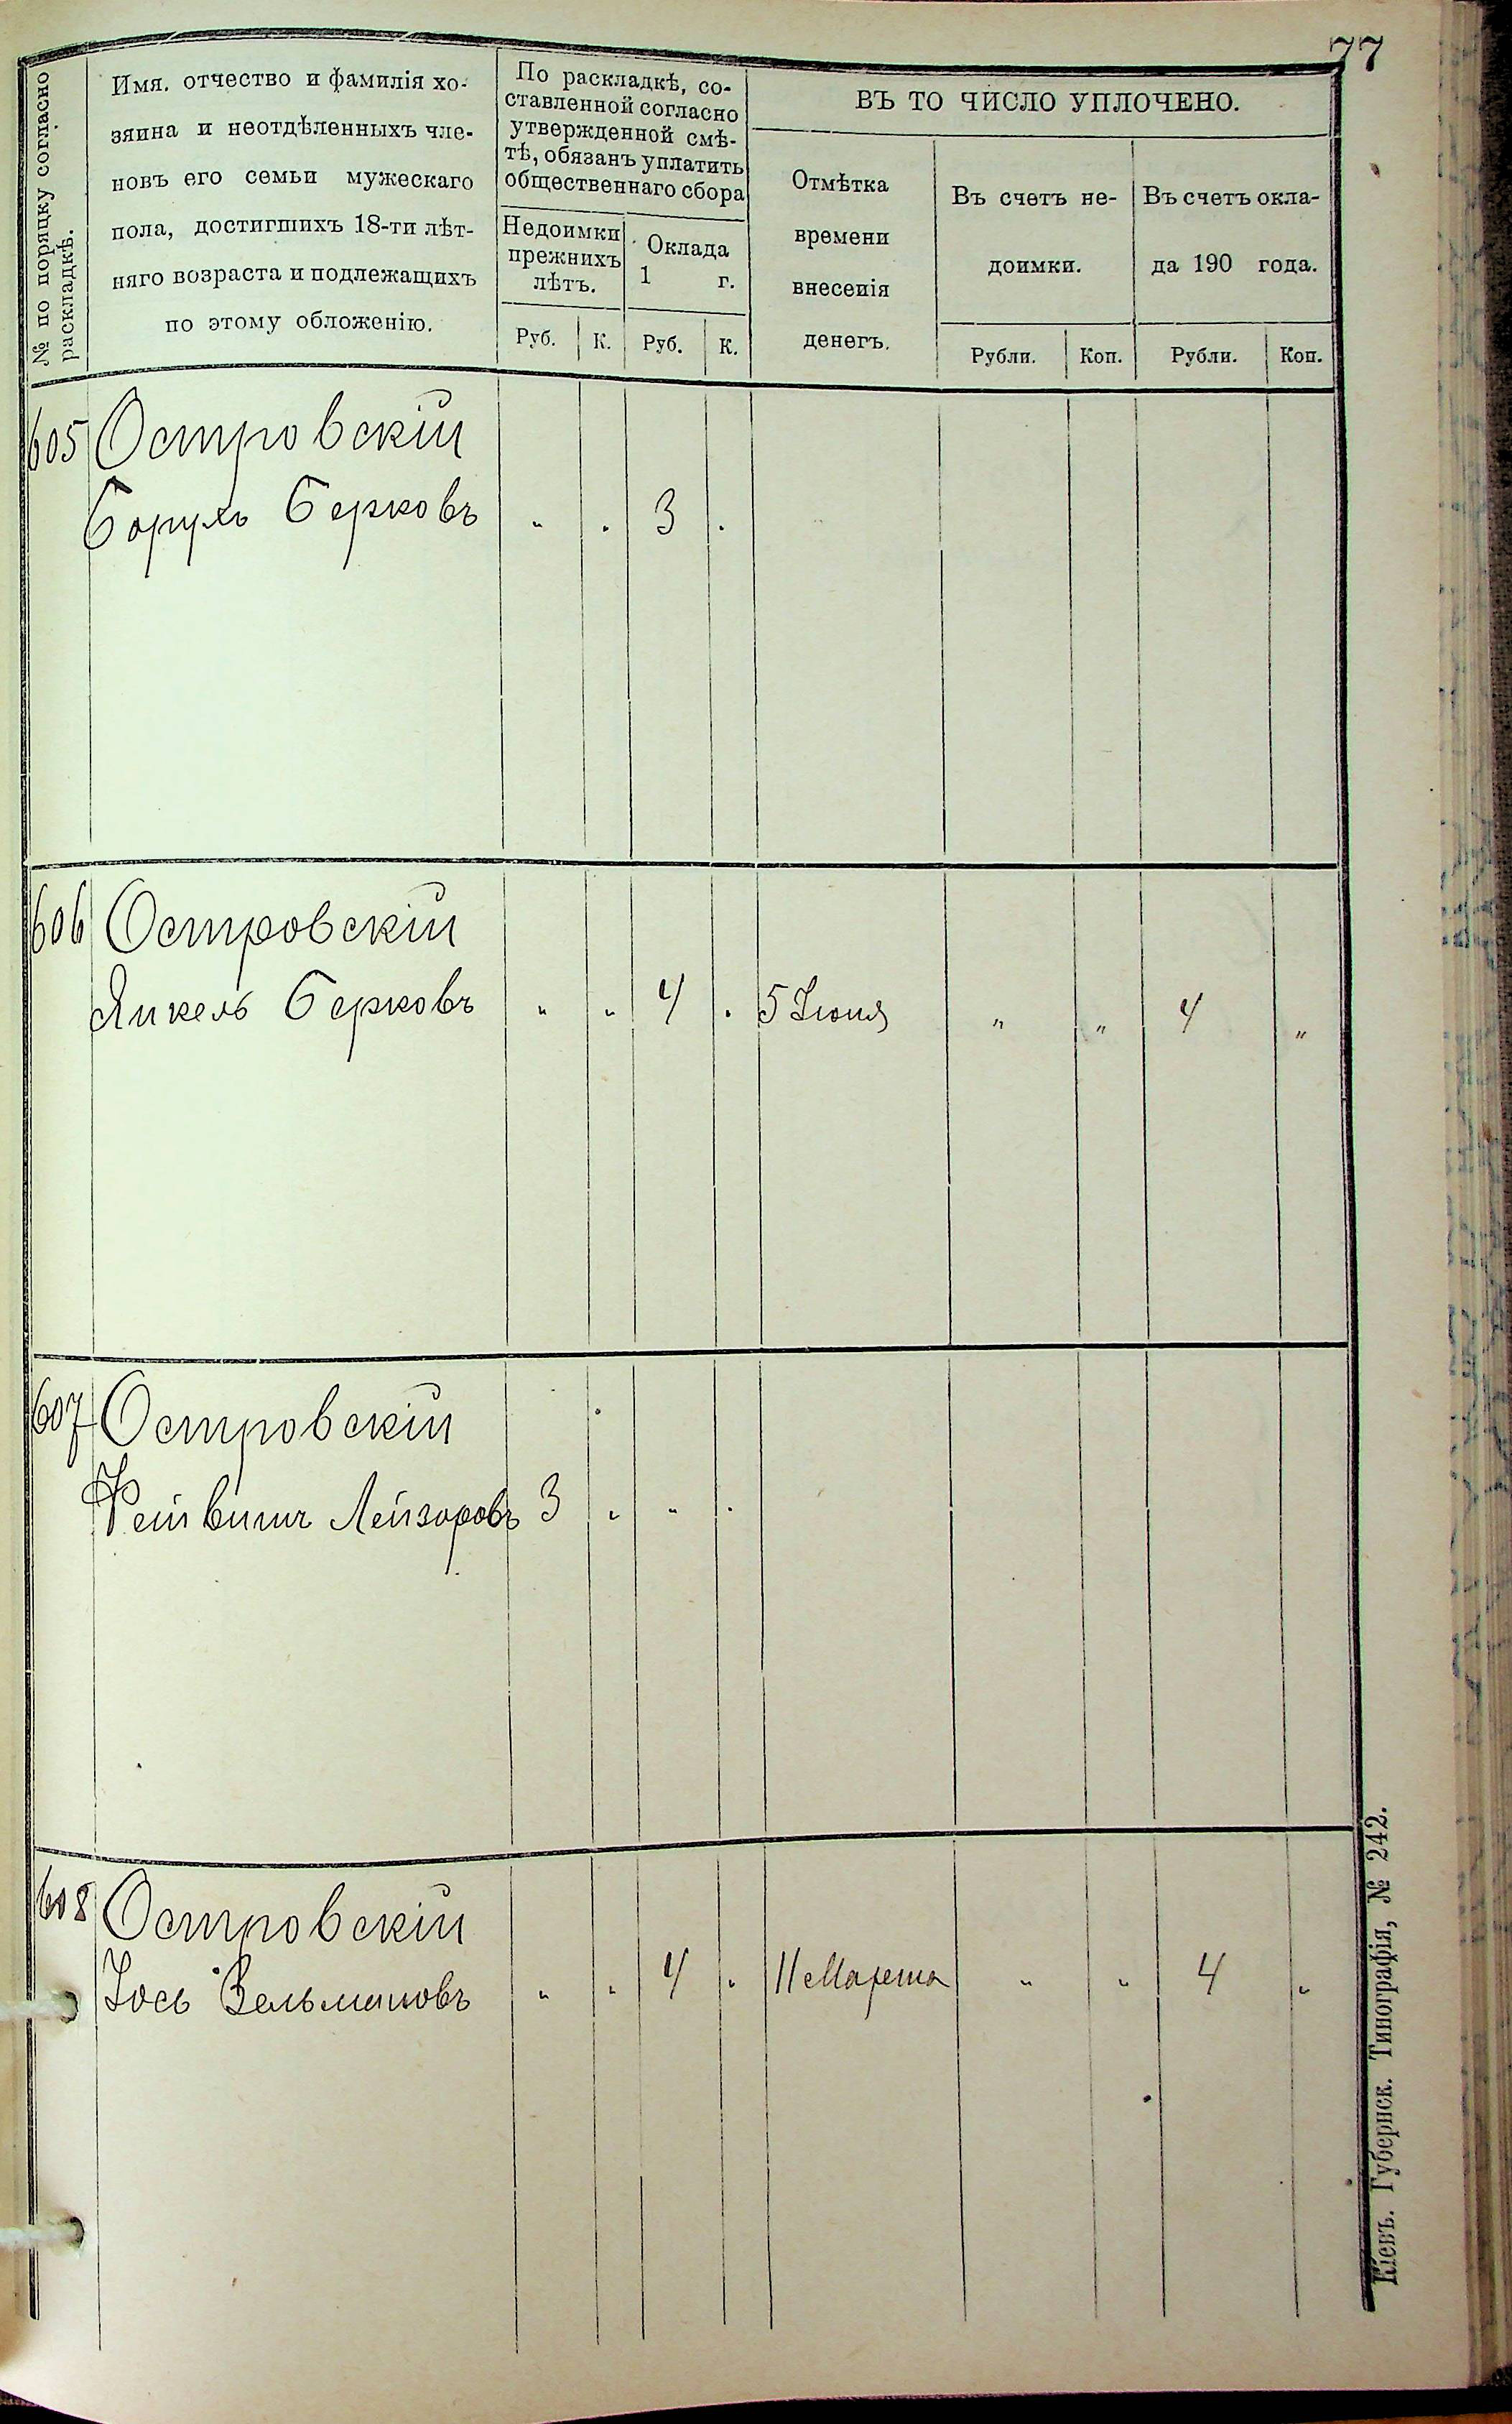 77
№ по порядку согласно
раскладкѣ.
Имя, отчество и фамилія хо-
зяина и неотдѣленныхъ чле-
новъ его семьи мужескаго
пола, достигшихъ 18-ти лѣт-
няго возраста и подлежащихъ
по этому обложенію.
По раскладкѣ, со-
ставленной согласно
утвержденной смѣ-
тѣ, обязанъ уплатить
общественнаго сбора
Недоимки
прежнихъ
лѣтъ.
Оклада
1 г.
Руб. К. Руб. К.
ВЪ ТО ЧИСЛО УПЛОЧЕНО.
Отмѣтка
времени
внесенія
денегъ.
Въ счетъ не-
доимки.
Въ счетъ окла-
да 190 года.
Рубли. Коп. Рубли. Коп.
605 Островскій
Борухъ Берковъ „ . 3 .
606 Островскій
Янкель Берковъ „ „ 4 . 5 Іюня „ „ 4 „
607 Островскій
Лейзоровъ 3 „ „ .
608 Островскій
Іось Зельмановъ „ . 4 „ 11 Марта „ „ 4 „
Кіевъ. Губернск. Типографія, № 242.